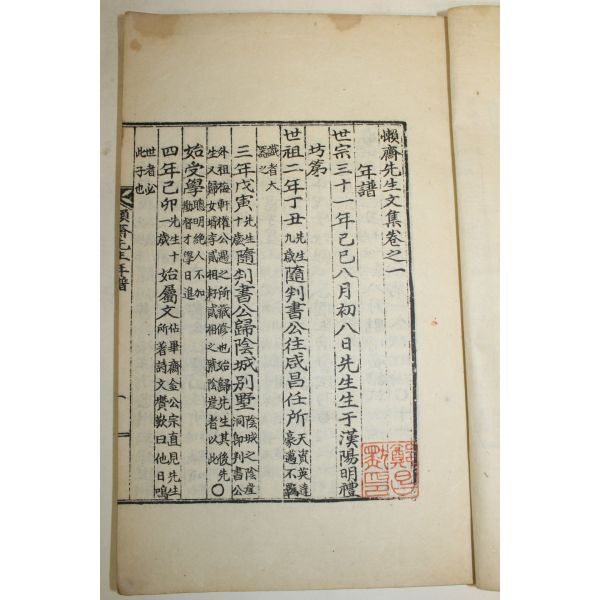 懶齋先生文集卷之一
年譜
世宗三十一年己巳八月初八日先生生于漢陽明禮
坊第
世祖二年丁丑先生九歲隨判書公往咸昌任所天資英達豪邁不羈
識者大器之
三年戊寅先生十歲隨判書公歸陰城別墅陰城之陰崖洞卽判書公
外祖梅軒權公遇之所藏修也始歸先生其後先生又歸女壻李貳相耔貳相之號陰崖者以此〇
始受學聰明絶人不加勸督才學日進
四年己卯先生十一歲始屬文佔畢齋金公宗直見先生所著詩文賞歎曰他日鳴
世者必此子也
懶齋先生年譜
一